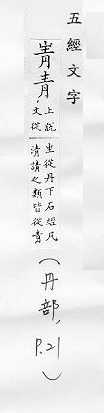 五經文字
靑青
上說文從
生從丹下石經凡
清請之類皆從青
(丹部,
P.21)